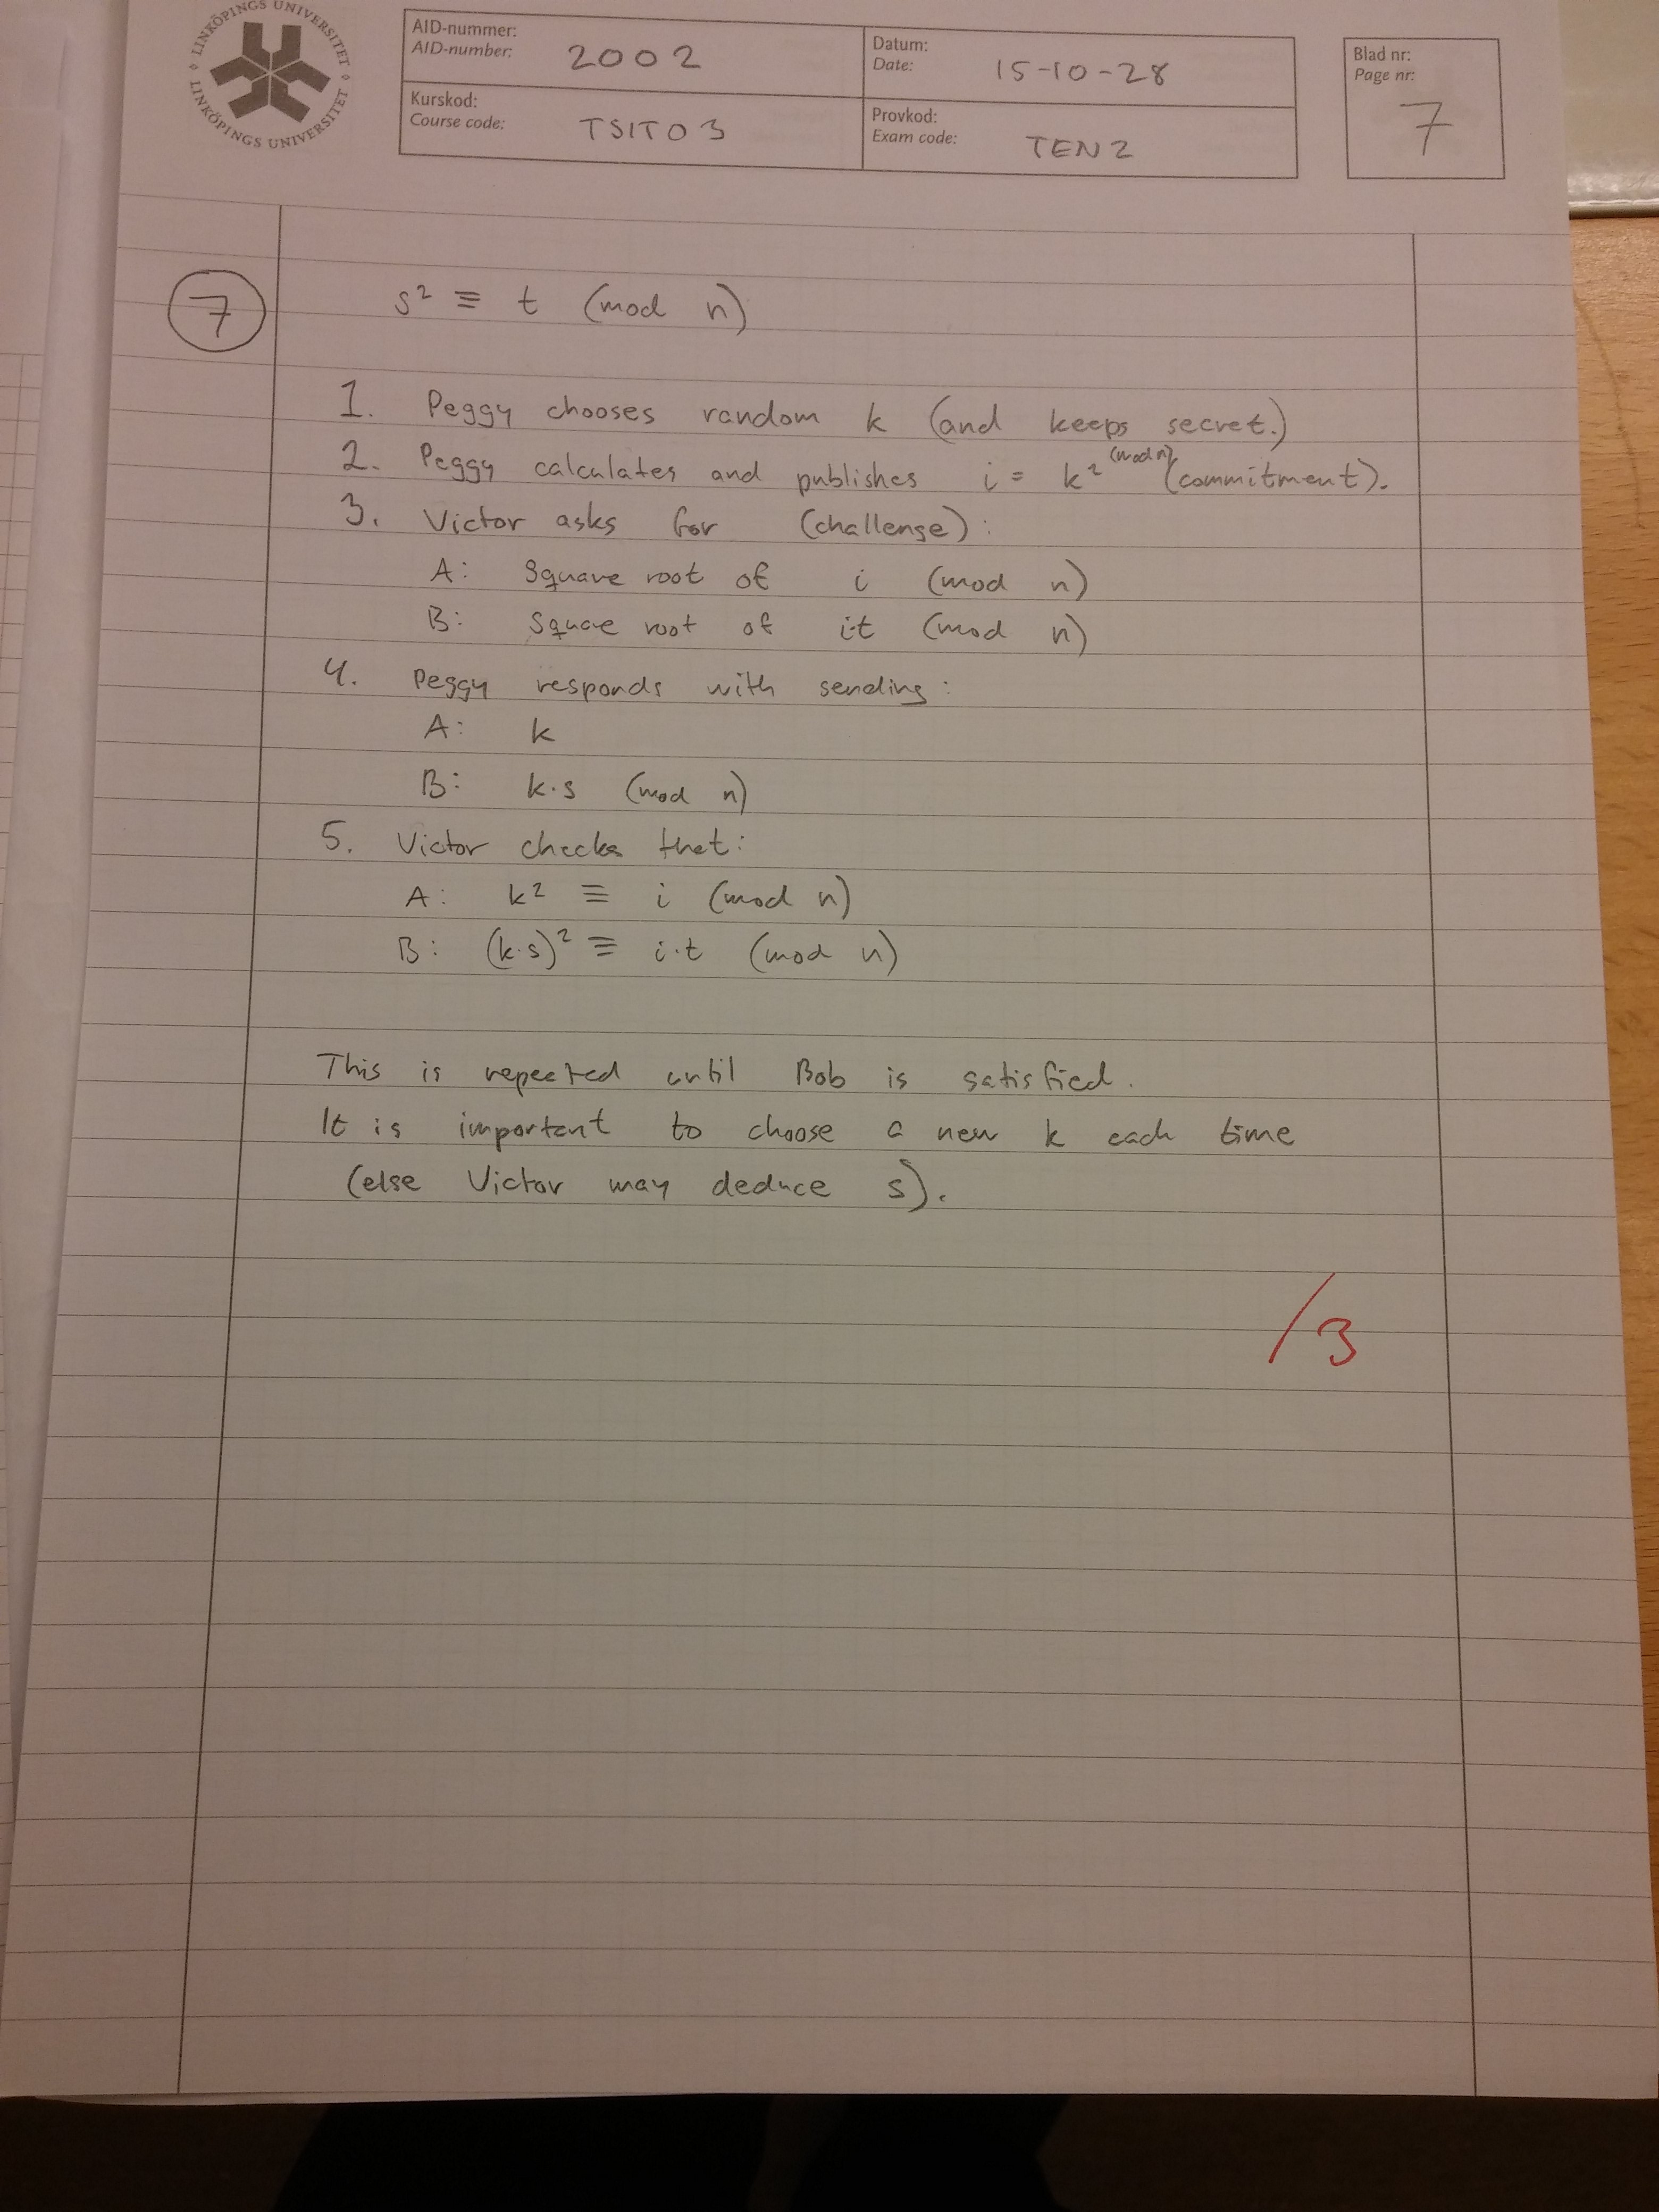 LINKÖPINGS UNIVERSITET
LINKÖPINGS UNIVERSITET
AID-nummer:
AID-number: 2002
Datum:
Date: 15-10-28
Blad nr:
Page nr:
7
Kurskod:
Course code: TSIT03
Provkod:
Exam code: TEN2
7 s² ≡ t (mod n)
1. Peggy chooses random k (and keeps secret.)
2. Peggy calculates and publishes i = k² (mod n) (commitment).
3. Victor asks for (challenge):
A: Square root of i (mod n)
B: Square root of i·t (mod n)
4. Peggy responds with sending:
A: k
B: k·s (mod n)
5. Victor checks that:
A: k² ≡ i (mod n)
B: (k·s)² ≡ i·t (mod n)
This is repeated until Bob is satisfied.
It is important to choose a new k each time
(else Victor may deduce s).
/3